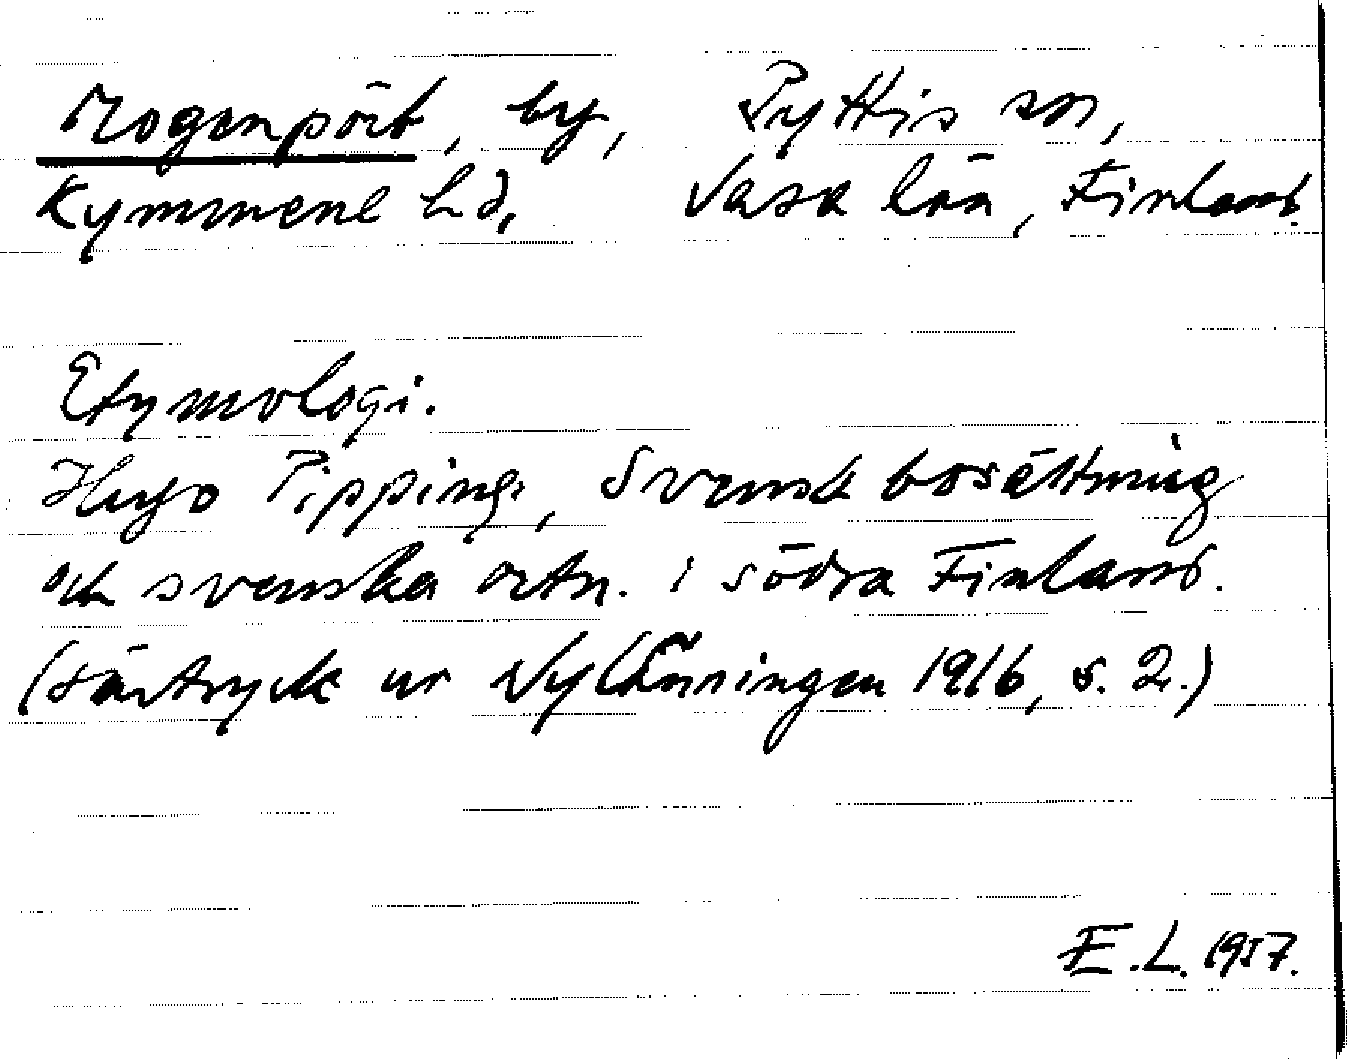 Mogenpört, by, Pyttis sn,
Kymmene hd, Vasa län, Finland.
Etymologi.
Hugo Pipping, Svensk bosättning
och svenska ortn. i södra Finland.
(Särtryck ur Nylänningen 1916, s. 2.)
E.L. 1957.